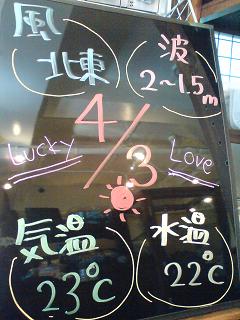 風
北東
波
2〜1.5m
4/3
Lucky
Love
気温
23℃
水温
22℃